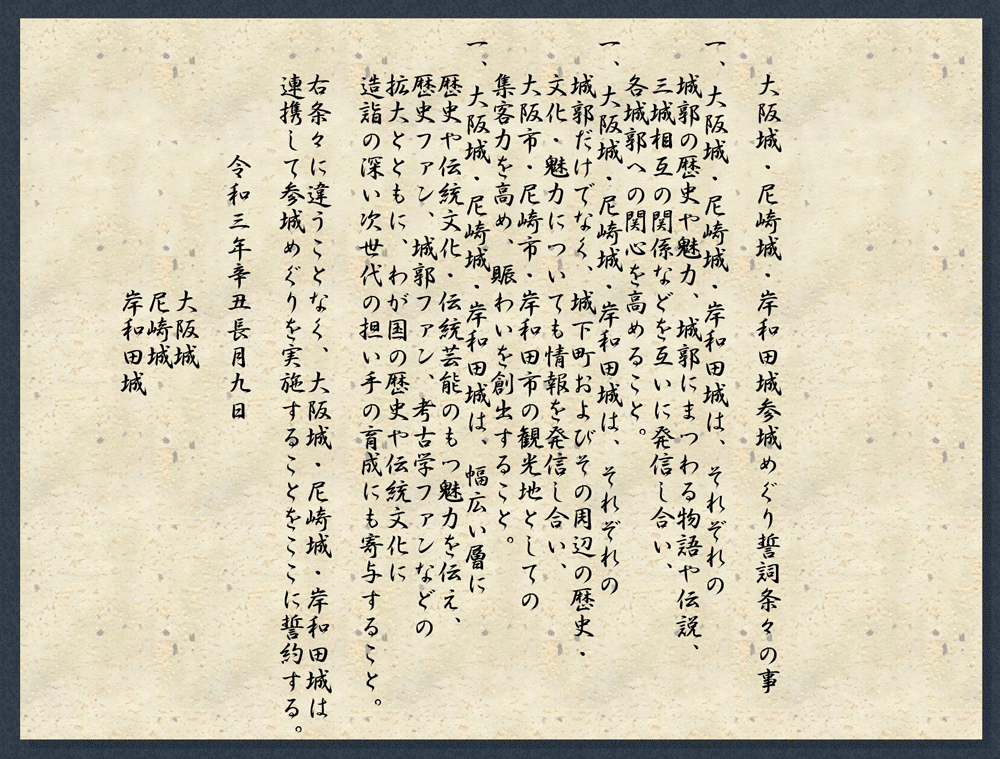 大阪城・尼崎城・岸和田城参城めぐり誓詞条々の事
一、大阪城・尼崎城・岸和田城は、それぞれの
城郭の歴史や魅力、城郭にまつわる物語や伝説、
三城相互の関係などを互いに発信し合い、
各城郭への関心を高めること。
一、大阪城・尼崎城・岸和田城は、それぞれの
城郭だけでなく、城下町およびその周辺の歴史・
文化・魅力についても情報を発信し合い、
大阪市・尼崎市・岸和田市の観光地としての
集客力を高め、賑わいを創出すること。
一、大阪城・尼崎城・岸和田城は、幅広い層に
歴史や伝統文化・伝統芸能のもつ魅力を伝え、
歴史ファン、城郭ファン、考古学ファンなどの
拡大とともに、わが国の歴史や伝統文化に
造詣の深い次世代の担い手の育成にも寄与すること。
右条々に違うことなく、大阪城・尼崎城・岸和田城は
連携して参城めぐりを実施することをここに誓約する。
令和三年辛丑長月九日
大阪城
尼崎城
岸和田城